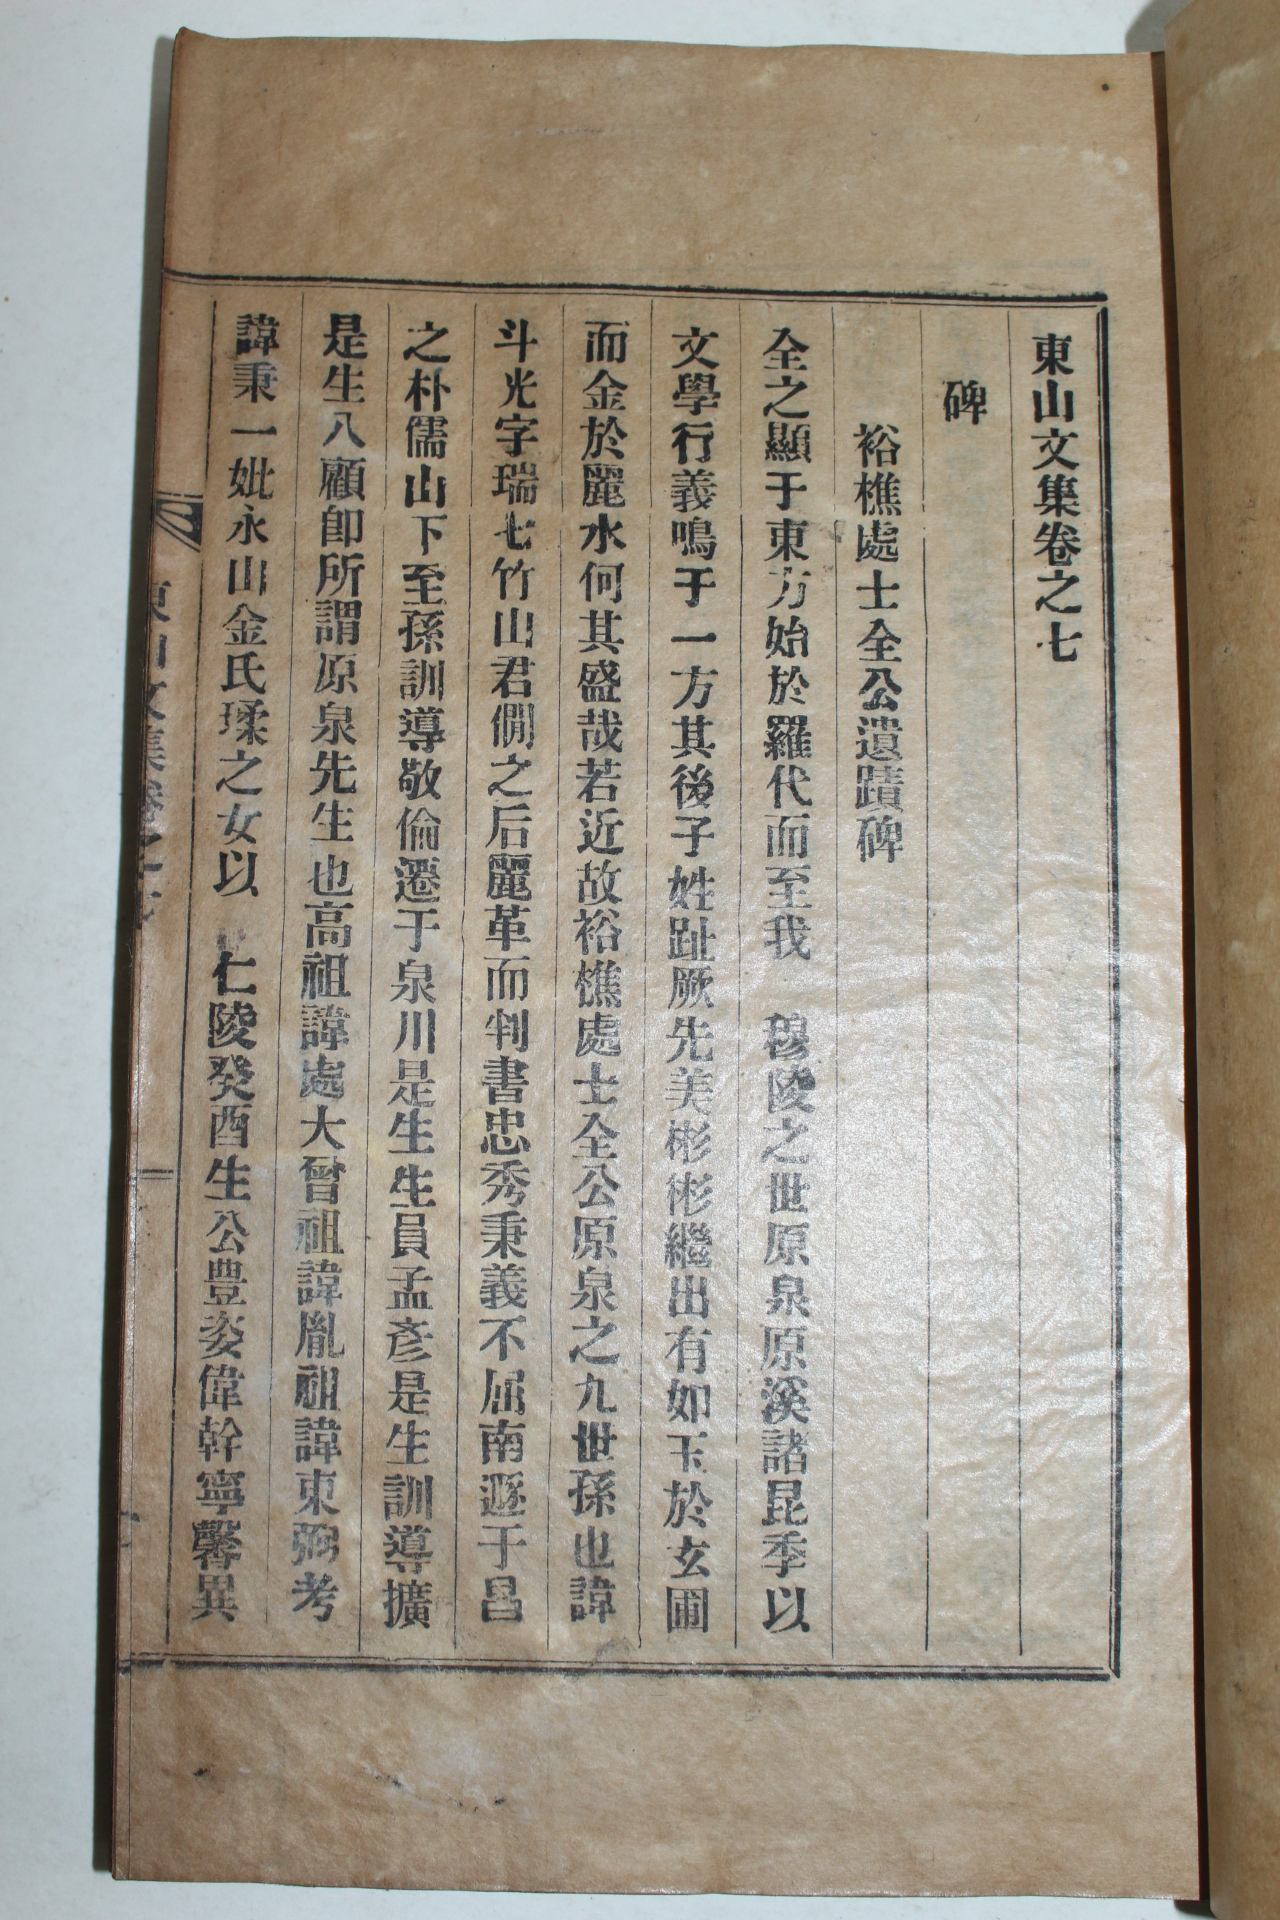 東山文集卷之七
碑
裕樵處士全公遺蹟碑
全之顯于東方始於羅代而至我 穆陵之世原泉原溪諸昆季以
文學行義鳴于一方其後子姓趾厥先美彬彬繼出有如玉於玄圃
而金於麗水何其盛哉若近故裕樵處士全公原泉之九世孫也諱
斗光字瑞七竹山君僴之后麗革而判書忠秀秉義不屈南遯于昌
之朴儒山下至孫訓導敬倫遷于泉川是生生員孟彥是生訓導擴
是生八顧卽所謂原泉先生也高祖諱處大曾祖諱胤祖諱東弼考
諱秉一妣永山金氏瑈之女以 仁陵癸酉生公豊姿偉幹寧馨異
東山文集卷之七